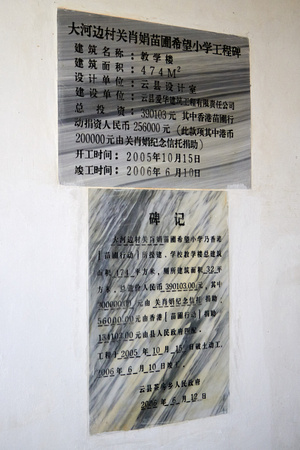 大河边村关肖娟苗圃希望小学工程碑
建筑名称：教学楼
建筑面积：474M²
设计单位：云县设计室
建设单位：云县爱华建筑工程有限责任公司
总投资：590103元 其中香港苗圃行
动捐资人民币256000元（此款项其中港币
200000元由关肖娟纪念信托捐助）
开工时间：2005年10月15日
竣工时间：2006年6月10日
碑记
大河边村关肖娟苗圃希望小学乃香港
［苗圃行动］所援建。学校教学楼总建筑
面积474平方米，厕所建筑面积32平
方米，总造价人民币390103.00元，其中
200000元由关肖娟纪念信托捐助，
56000.00元由香港［苗圃行动］捐助，
134103.00元由县人民政府匹配。
工程于2005年10月15日破土动工，
2006年6月10日竣工。
云县 乡人民政府
2006年6月12日